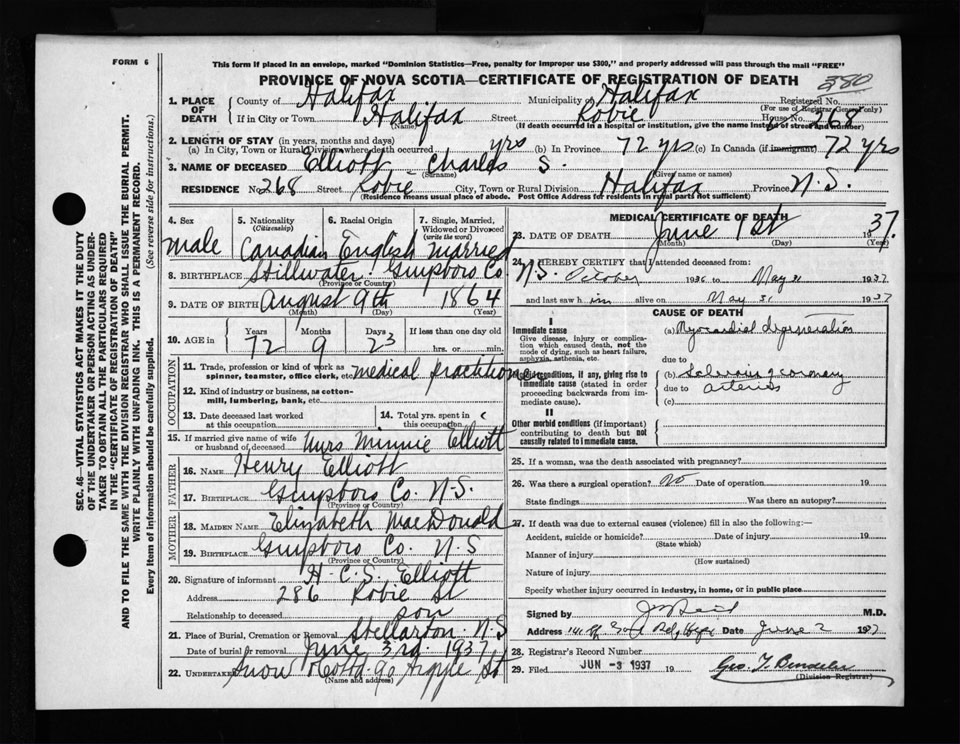 FORM 6
This form if placed in an envelope, marked "Dominion Statistics—Free, penalty for improper use $300," and properly addressed will pass through the mail "FREE"
PROVINCE OF NOVA SCOTIA—CERTIFICATE OF REGISTRATION OF DEATH
380
1. PLACE OF DEATH
County of Halifax Municipality of Halifax Registered No.
(For use of Registrar General only)
If in City or Town Halifax Street Robie House No. 268
(Name) (If death occurred in a hospital or institution, give the name instead of street and number)
2. LENGTH OF STAY (in years, months and days)
(a) In City, Town or Rural Division where death occurred yrs (b) In Province 72 yrs (c) In Canada (if immigrant) 72 yrs
3. NAME OF DECEASED Elliott Charles S.
(Surname) (Given name or names)
RESIDENCE No. 268 Street Robie City, Town or Rural Division Halifax Province N.S.
(Residence means usual place of abode. Post Office Address for residents in rural parts not sufficient)
4. Sex
male
5. Nationality
(Citizenship)
Canadian
6. Racial Origin
English
7. Single, Married, Widowed or Divorced
(write the word)
Married
8. BIRTHPLACE Stillwater Guysboro Co. N.S.
(Province or Country)
9. DATE OF BIRTH August 9th 1864
(Month) (Day) (Year)
10. AGE in
Years Months Days If less than one day old
72 9 23 hrs. or min.
OCCUPATION
11. Trade, profession or kind of work as spinner, teamster, office clerk, etc. medical practitioner
12. Kind of industry or business, as cotton-mill, lumbering, bank, etc.
13. Date deceased last worked at this occupation
14. Total yrs. spent in this occupation
15. If married give name of wife or husband of deceased Mrs Minnie Elliott
FATHER
16. NAME Henry Elliott
17. BIRTHPLACE Guysboro Co. N.S.
(Province or Country)
MOTHER
18. MAIDEN NAME Elizabeth MacDonald
19. BIRTHPLACE Guysboro Co. N.S
(Province or Country)
20. Signature of informant H. C. S. Elliott
Address 286 Robie St
Relationship to deceased son
21. Place of Burial, Cremation or Removal Stellarton N.S
Date of burial or removal June 3rd 1937
22. UNDERTAKER Snow & Co Ltd 90 Argyle St
(Name and address)
MEDICAL CERTIFICATE OF DEATH
23. DATE OF DEATH June 1st 1937.
(Month) (Day) (Year)
24. I HEREBY CERTIFY that I attended deceased from:
October 1936 to May 31 1937
and last saw him alive on May 31 1937
CAUSE OF DEATH
I
Immediate cause
Give disease, injury or complication which caused death, not the mode of dying, such as heart failure, asphyxia, asthenia, etc.
(a) Myocardial degeneration
due to
Morbid conditions, if any, giving rise to immediate cause (stated in order proceeding backwards from immediate cause).
(b) Sclerosis of coronary
due to arteries
(c)
II
Other morbid conditions (if important) contributing to death but not causally related to immediate cause.
25. If a woman, was the death associated with pregnancy?
26. Was there a surgical operation? No Date of operation 19
State findings Was there an autopsy?
27. If death was due to external causes (violence) fill in also the following:—
Accident, suicide or homicide? Date of injury 19
(State which)
Manner of injury
(How sustained)
Nature of injury
Specify whether injury occurred in industry, in home, or in public place
Signed by M.D.
Address Date June 2 1937
28. Registrar's Record Number
29. Filed JUN -3 1937 19
(Division Registrar)
SEC. 46—VITAL STATISTICS ACT MAKES IT THE DUTY
OF THE UNDERTAKER OR PERSON ACTING AS UNDER-
TAKER TO OBTAIN ALL THE PARTICULARS REQUIRED
IN THE "CERTIFICATE OF REGISTRATION OF DEATH"
AND TO FILE THE SAME WITH THE DIVISION REGISTRAR WHO SHALL ISSUE THE BURIAL PERMIT.
WRITE PLAINLY WITH UNFADING INK. THIS IS A PERMANENT RECORD.
Every item of information should be carefully supplied. (See reverse side for instructions.)